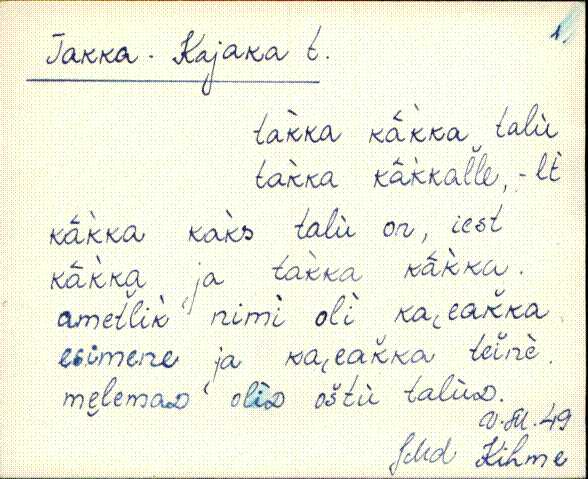 Takka - Kajaka t.
tak̀ka kâk̀ka talù
tak̀ka kâk̀kal̆l̆e, -lt̀
kâk̀ka kaks talù on, iest
kâk̀ka ja tak̀ka kâk̀ka.
ametl̆ik̀ nimì olì ka͔eak̆ka
esimene ja ka͔eak̆ka teinè.
melemaᴅ olìᴅ oštù talùᴅ.
Kihme